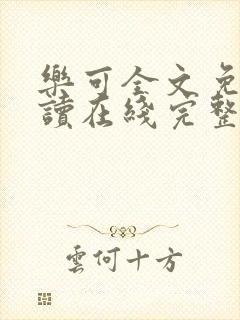 樂可全文免
讀在綫完整
雲何十方